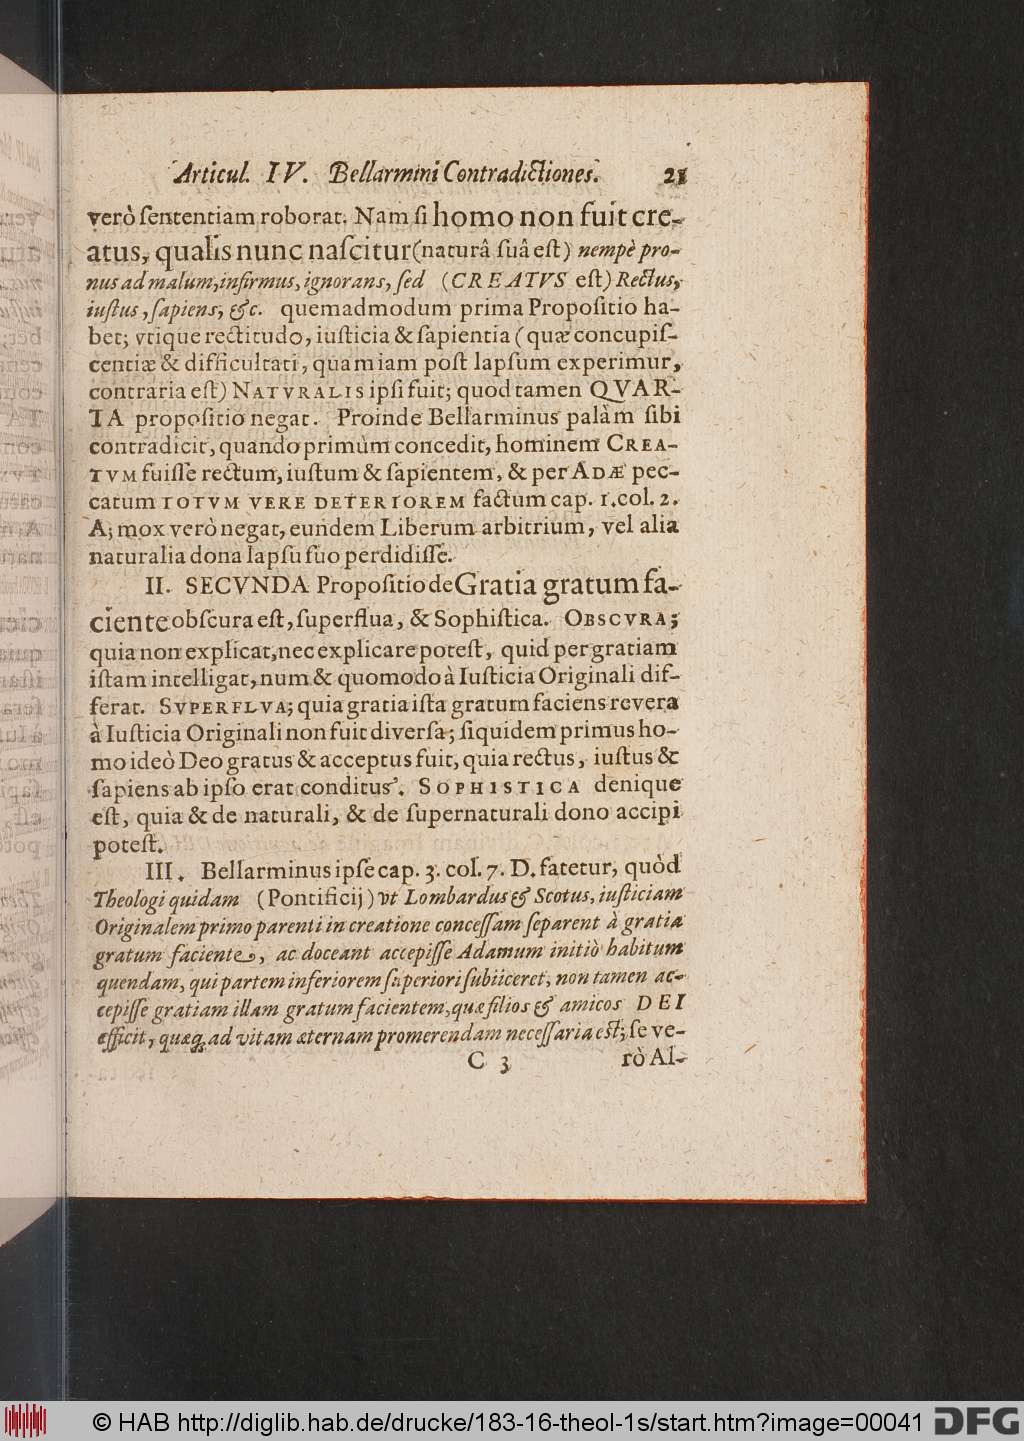 Articul. IV. Bellarmini Contradictiones. 21
verò ſententiam roborat. Nam ſi homo non fuit cre-
atus, qualis nunc naſcitur (naturâ ſuâ eſt) nempè pro-
nus ad malum, infirmus, ignorans, ſed (CREATVS eſt) Rectus,
iuſtus, ſapiens, &c. quemadmodum prima Propoſitio ha-
bet; vtique rectitudo, iuſticia & ſapientia (quæ concupiſ-
centiæ & difficultati, quam iam poſt lapſum experimur,
contraria eſt) NATVRALIS ipſi fuit; quod tamen QVAR-
TA propoſitio negat. Proinde Bellarminus palàm ſibi
contradicit, quando primùm concedit, hominem CREA-
TVM fuiſſe rectum, iuſtum & ſapientem, & per ADÆ pec-
catum TOTVM VERE DETERIOREM factum cap. 1. col. 2.
A; mox verò negat, eundem Liberum arbitrium, vel alia
naturalia dona lapſu ſuo perdidiſſe.
II. SECVNDA Propoſitio de Gratia gratum fa-
ciente obſcura eſt, ſuperflua, & Sophiſtica. OBSCVRA;
quia non explicat, nec explicare poteſt, quid per gratiam
iſtam intelligat, num & quomodo à Iuſticia Originali dif-
ferat. SVPERFLVA; quia gratia iſta gratum faciens revera
à Iuſticia Originali non fuit diverſa; ſiquidem primus ho-
mo ideò Deo gratus & acceptus fuit, quia rectus, iuſtus &
ſapiens ab ipſo erat conditus. SOPHISTICA denique
eſt, quia & de naturali, & de ſupernaturali dono accipi
poteſt.
III. Bellarminus ipſe cap. 3. col. 7. D. fatetur, quòd
Theologi quidam (Pontificij) vt Lombardus & Scotus, iuſticiam
Originalem primo parenti in creatione conceſſam ſeparent à gratia
gratum faciente, ac doceant accepiſſe Adamum initiò habitum
quendam, qui partem inferiorem ſuperiori ſubiiceret, non tamen ac-
cepiſſe gratiam illam gratum facientem, quæ filios & amicos DEI
efficit, quæq; ad vitam æternam promerendam neceſſaria eſt; ſe ve-
C 3 rò Al-
© HAB http://diglib.hab.de/drucke/183-16-theol-1s/start.htm?image=00041 DFG